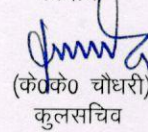 (के0के0 चौधरी)
कुलसचिव